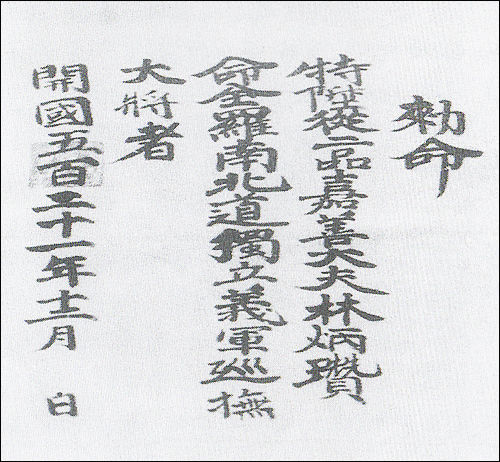 勅命
特陞從二品嘉善大夫林炳瓚
命全羅南北道獨立義軍巡撫
大將者
開國五百二十一年十二月 日